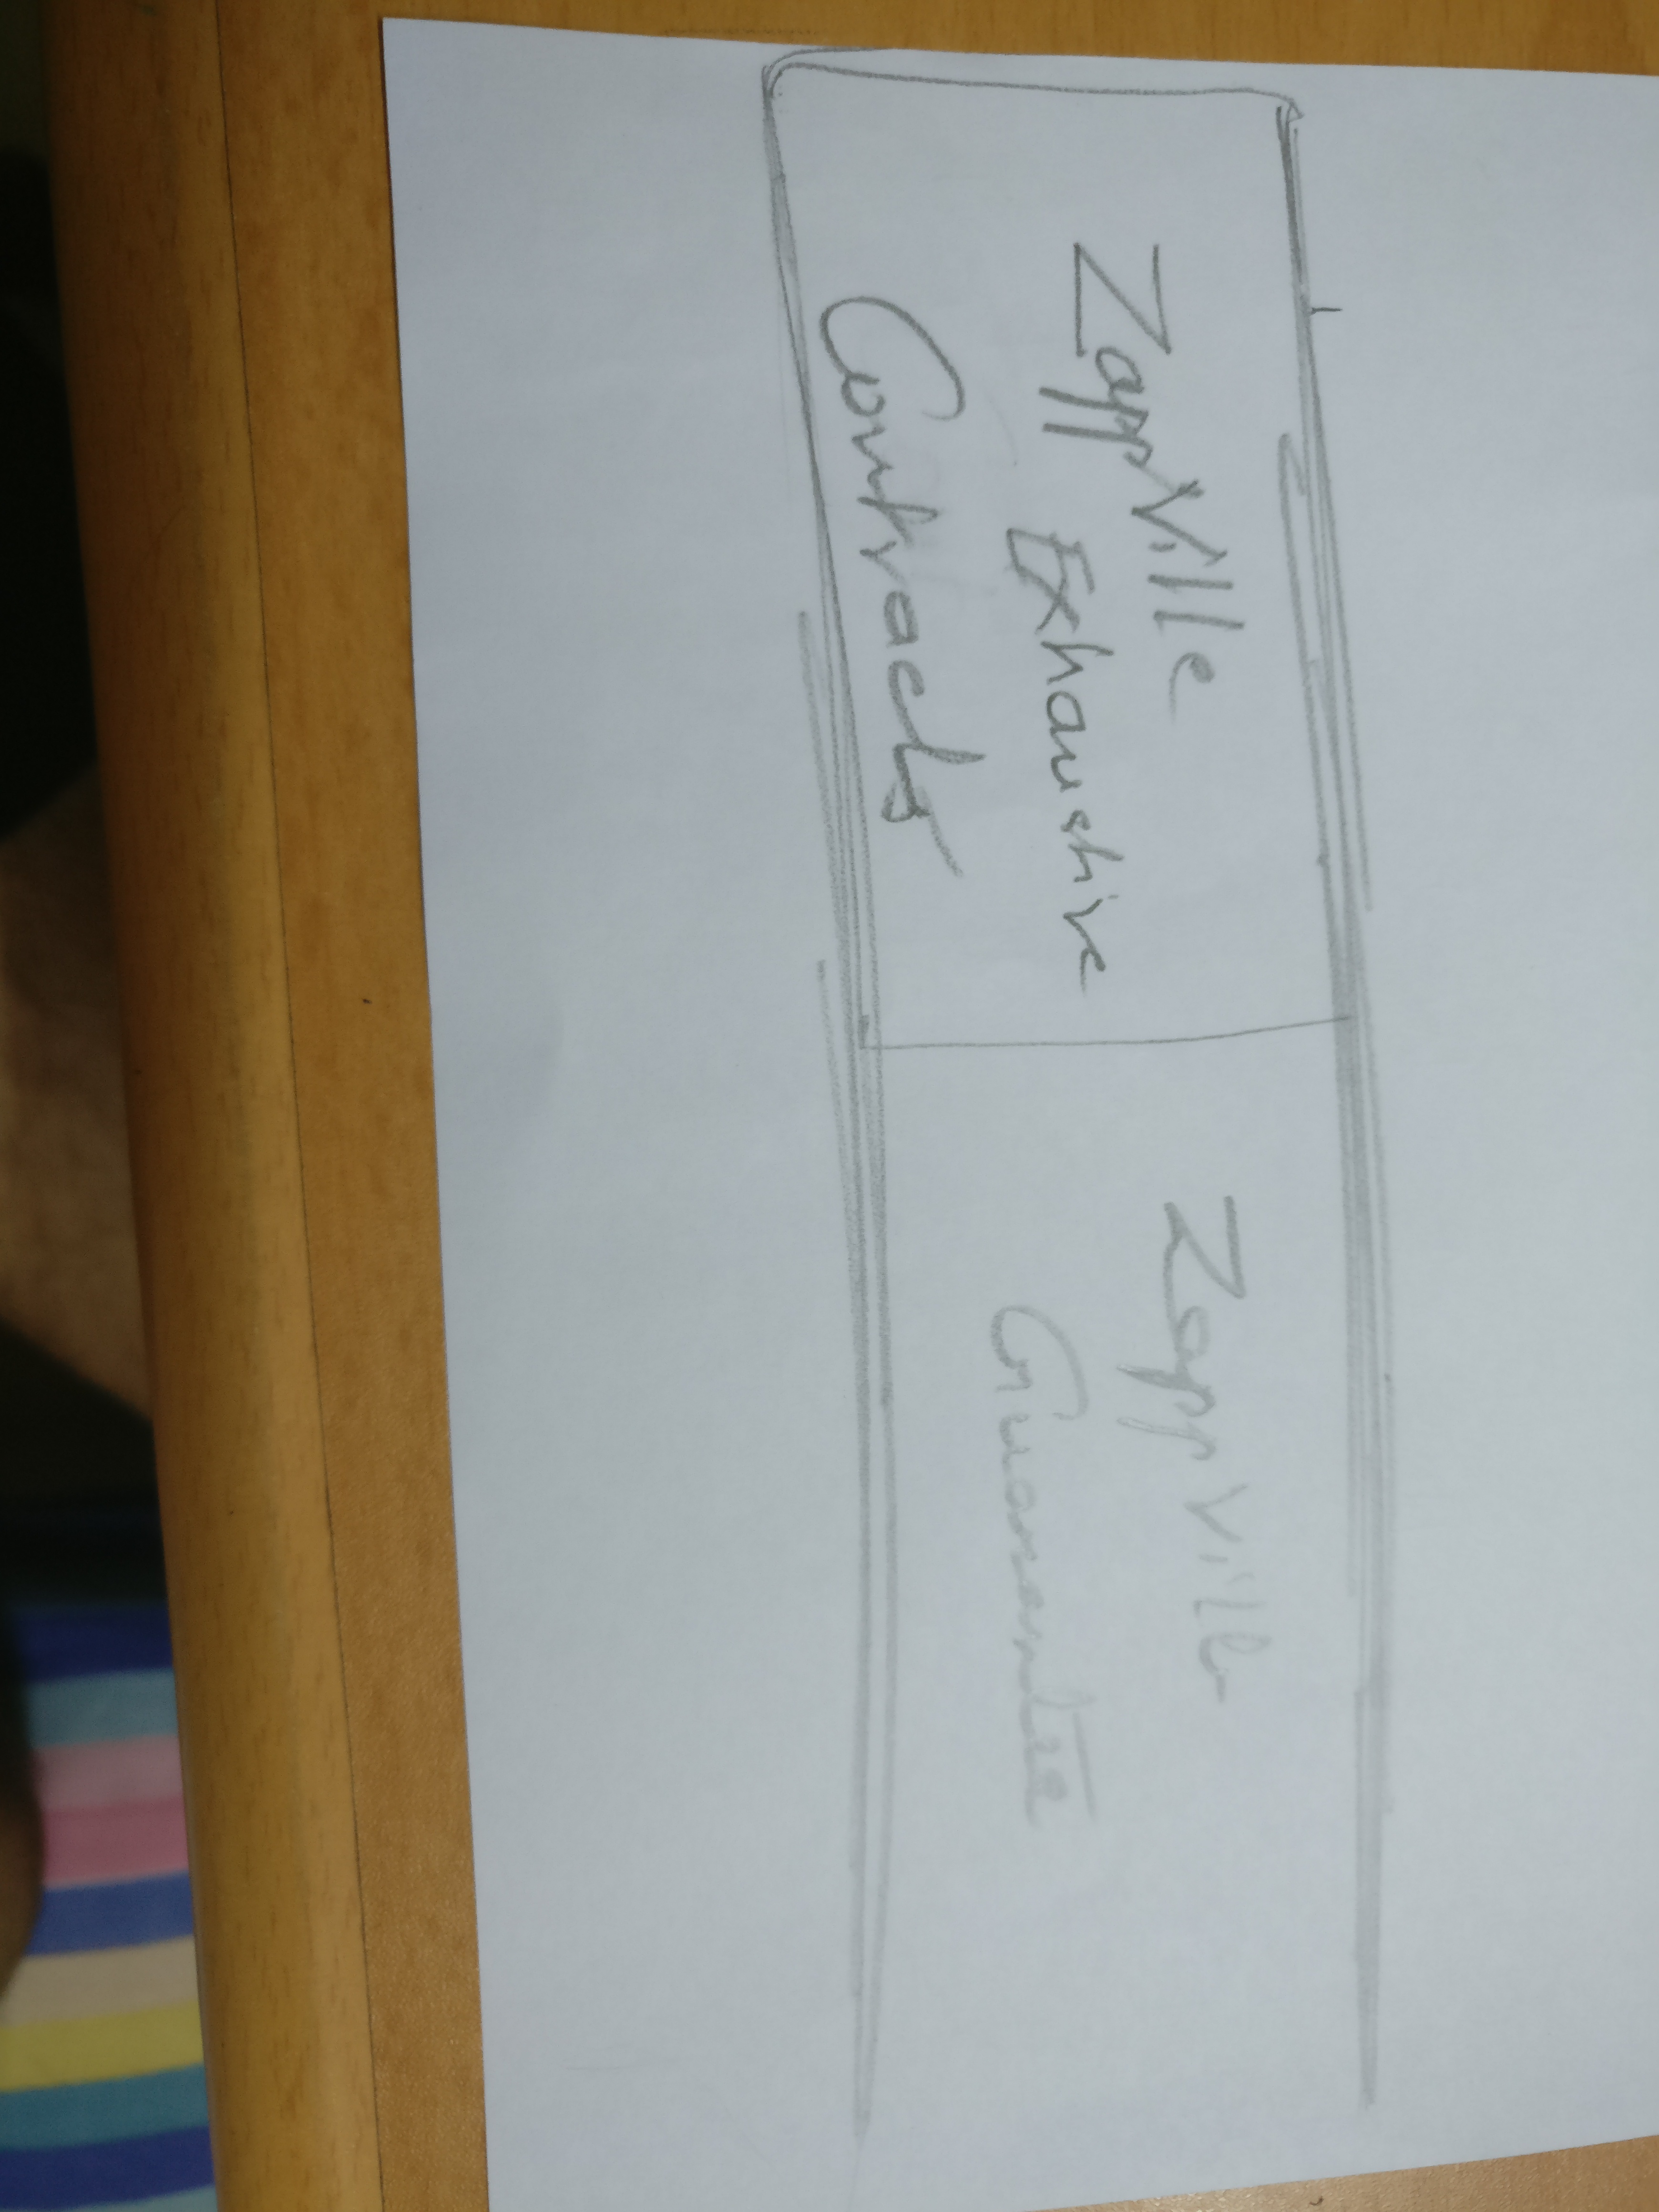 ZappVille
Exhaustive
Contracts
ZappVille
Guarantee